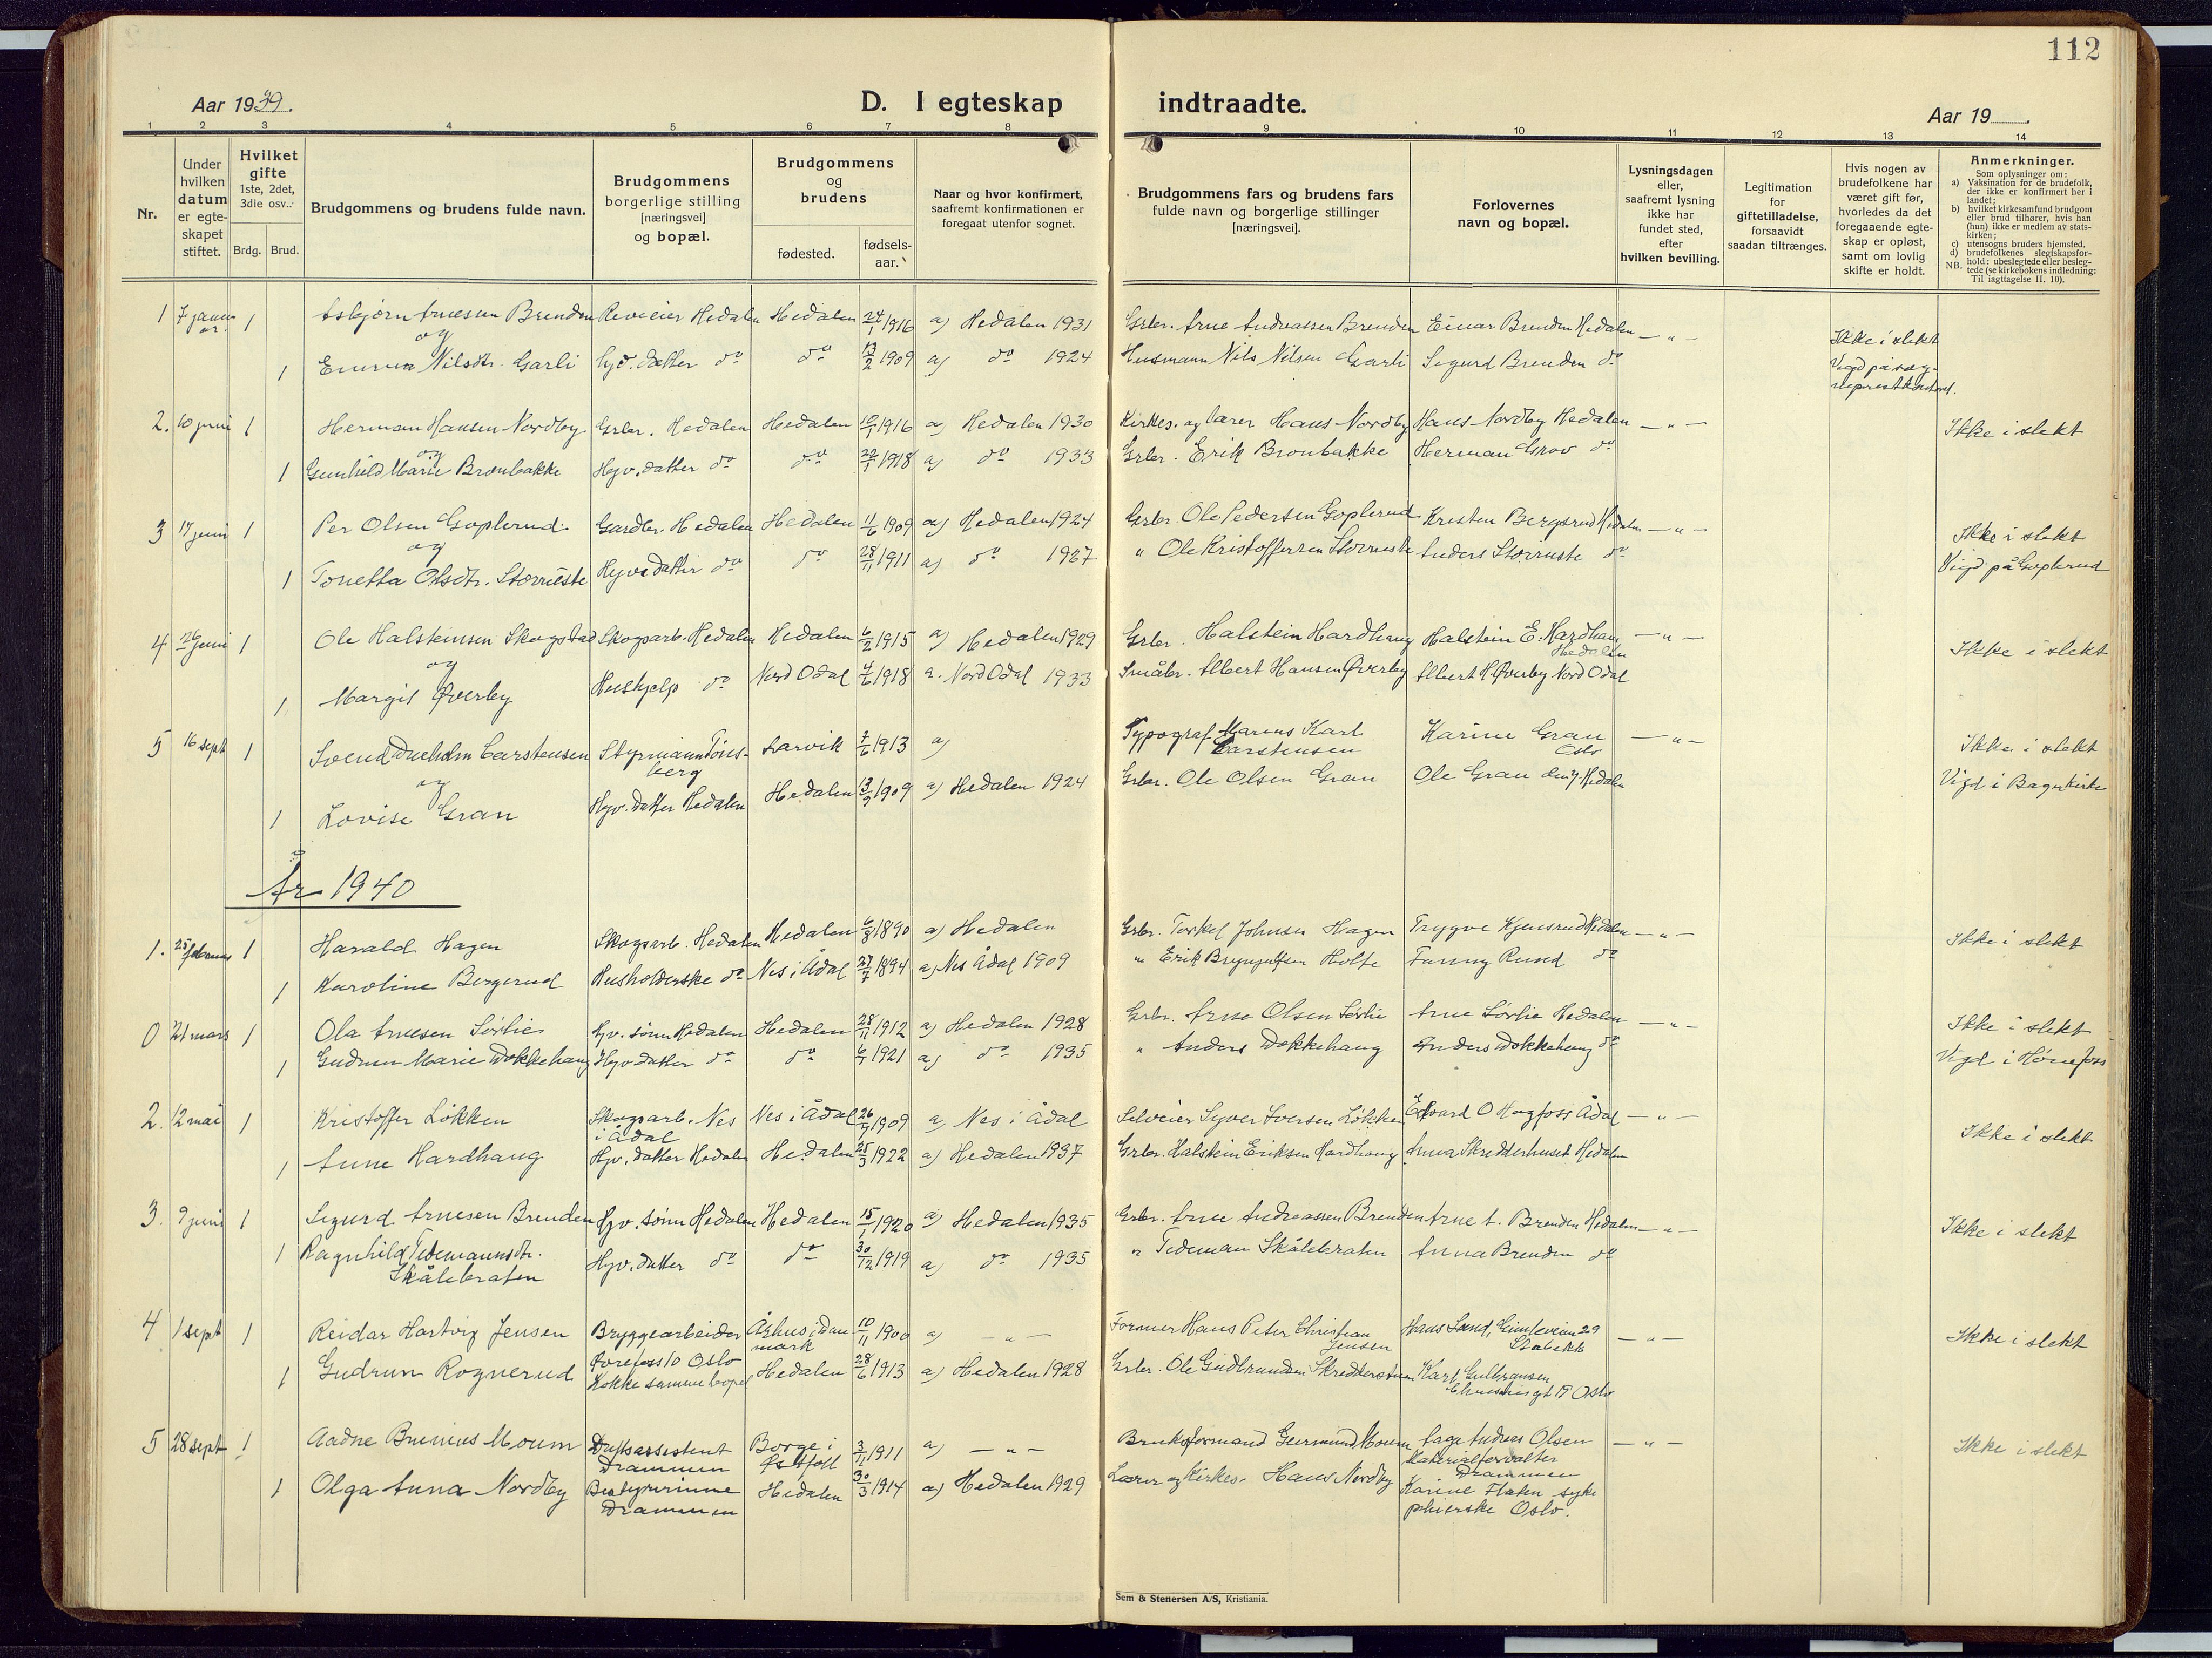 112
Aar 1939.
D. I egteskap indtraadte.
Aar 19
1 2 3 4 5 6 7 8 9 10 11 12 13 14
Nr.
Under hvilken datum er egte-skapet stiftet.
Hvilket gifte 1ste, 2det, 3die osv..
Brdg. Brud.
Brudgommens og brudens fulde navn.
Brudgommens borgerlige stilling [næringsvei] og bopæl.
Brudgommens og brudens
fødested.
fødsels-aar.
Naar og hvor konfirmert, saafremt konfirmationen er foregaat utenfor sognet.
Brudgommens fars og brudens fars fulde navn og borgerlige stillinger [næringsvei].
Forlovernes navn og bopæl.
Lysningsdagen eller, saafremt lysning ikke har fundet sted, efter hvilken bevilling.
Legitimation for giftetilladelse, forsaavidt saadan tiltrænges.
Hvis nogen av brudefolkene har været gift før, hvorledes da det foregaaende egte-skap er opløst, samt om lovlig skifte er holdt.
Anmerkninger.
Som oplysninger om:
a) Vaksination for de brudefolk, der ikke er konfirmert her i landet;
b) hvilket kirkesamfund brudgom eller brud tilhører, hvis han (hun) ikke er medlem av stats-kirken;
c) utensogns bruders hjemsted.
d) brudefolkenes slegtskapsfor-hold: ubeslegtede eller besleg-tede (se kirkebokens indledning: Til iagttagelse II. 10).
NB.
1 7 januar. 1 Asbjørn Arnesen Brenden Reveier Hedalen Hedalen 24/1 1916 a) Hedalen 1931 Grbr. Arne Andreassen Brenden Einar Brenden Hedalen — " — Ikke i slekt
og
1 Emma Nilsdtr. Garli Hjv. datter do do 13/2 1909 a) do 1924 Husmann Nils Nilsen Garli Sigurd Brenden do Vigd på
2. 10 juni 1 Herman Hansen Nordby Grbr. Hedalen Hedalen 10/1 1916 a) Hedalen 1930 Kirkes. og lærer Hans Nordby Hans Nordby Hedalen — " — Ikke i slekt
og
1 Gunhild Marie Bronbakke Hjv. datter do do 22/1 1918 a) do 1933 Grbr. Erik Bronbakke Herman Grov do
3 17 juni 1 Per Olsen Goplerud Gardbr. Hedalen Hedalen 11/6 1909 a) Hedalen 1924 Grbr. Ole Pedersen Goplerud Kristen Bergsrud Hedalen — " — Ikke i slekt
og
1 Tonetta Olsdtr. Storruste Hjv. datter do do 28/11 1911 a) do 1927 " Ole Kristoffersen Storruste Anders Storruste do Vigd på Goplerud
4 26 juni 1 Ole Halsteinsen Skogstad Skogsarb. Hedalen Hedalen 6/2 1915 a) Hedalen 1929 Grbr. Halstein Hardhaug Halstein E. Hardhaug Hedalen — " — Ikke i slekt
og
1 Margit Øverby Hushjelp do Nord Odal 4/6 1918 a. Nord Odal 1933 Småbr. Albert Hansen Øverby Albert H Øverby Nord Odal
5 16 sept 1 Svend Dueholm Carstensen Styrmann Tønsberg Larvik 7/6 1913 a) Typograf Marius Karl Carstensen Karine Gran Oslo — " — Ikke i slekt
og
1 Lovise Gran Hjv. datter Hedalen Hedalen 13/9 1909 a) Hedalen 1924 Grbr. Ole Olsen Gran Ole Gran Hedalen Vigd i Bagn kirke
År 1940
1. 25 februar 1 Harald Hagen Skogsarb. Hedalen Hedalen 6/8 1890 a) Hedalen Grbr. Torkel Johnsen Hagen Trygve Kjensrud Hedalen — " — Ikke i slekt
1 Karoline Bergerud Husholderske do Nes i Ådal 27/7 1894 a) Nes Ådal 1909 " Erik Brynjulfsen Holte Fanny Rund do
0 21 mars 1 Ola Arnesen Sørlie Gjv. sønn Hedalen Hedalen 28/11 1912 a) Hedalen 1928 Grbr. Arne Olsen Sørlie Arne Sørlie Hedalen — " — Ikke i slekt
1 Gudrun Marie Dokkehaug Hjv. datter do do 1921 a) do 1935 " Anders Dokkehaug Anders Dokkehaug do Vigd i Hønefoss
2. 12 mai 1 Kristoffer Løkken Skogsarb. Nes i Ådal Nes i Ådal 26/7 1909 a) Nes i Ådal Selveier Syver Iversen Løkken Edvard O Hagfoss Ådal — " — Ikke i slekt
1 Anne Hardhaug Hjv. datter Hedalen Hedalen 25/3 1922 a) Hedalen 1937 Grbr. Halstein Eriksen Hardhaug Anna Skredderhuset Hedalen
3. 9 juni 1 Sigurd Arnesen Brenden Hjv. sønn Hedalen Hedalen 15/1 1920 a) Hedalen 1935 Grbr. Arne Andreassen Brenden Arne A. Brenden Hedalen — " — Ikke i slekt
1 Ragnhild Tidemannsdtr. Skålebraten Hjv. datter do do 30/12 1919 a) do 1935 " Tideman Skålebraten Anna Brenden do
4 1 sept 1 Reidar Hartvig Jensen Bryggearbeider Århus i Danmark 10/11 1900 a) — " — Former Hans Peter Christian Jensen Hans Sand, 29 Stabekk — " — Ikke i slekt
1 Gudrun Rognerud Øvrefoss 10 Oslo Kokke samme bopel Hedalen 28/6 1913 a) Hedalen 1928 Grbr. Ole Gudbrandsen Skredderstuen Karl Gulbransen Oslo
5 28 sept 1 Aadne Brunius Moum Driftsassistent Drammen Borge i Østfoll 3/11 1911 a) — " — Bruksformand Geirmund Moum Aage Andreas Olsen Materialforvalter Drammen — " — Ikke i slekt
1 Olga Anna Nordby Bestyrerinne Drammen Hedalen 30/3 1914 a) Hedalen 1929 Lærer og Kirkes. Hans Nordby Karine Flaten sykepleierske Oslo.
Sem & Stenersen A/S, Kristiania.